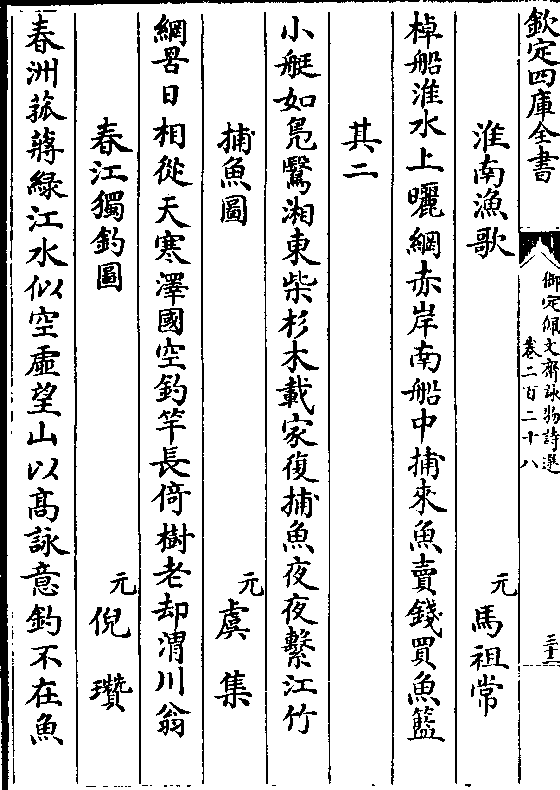 欽定四庫全書
御定佩文齋詠物詩選
卷二百二十八
三十二
淮南漁歌 元 馬祖常
棹船淮水上曬網赤岸南船中捕來魚賣錢買魚籃
其二
小艇如鳬鷖湘東柴杉木載家復捕魚夜夜繫江竹
捕魚圖 元 虞集
網罟日相從天寒澤國空釣竿長倚樹老却渭川翁
春江獨釣圖 元 倪瓚
春洲菰蔣緑江水似空虛望山以高詠意釣不在魚